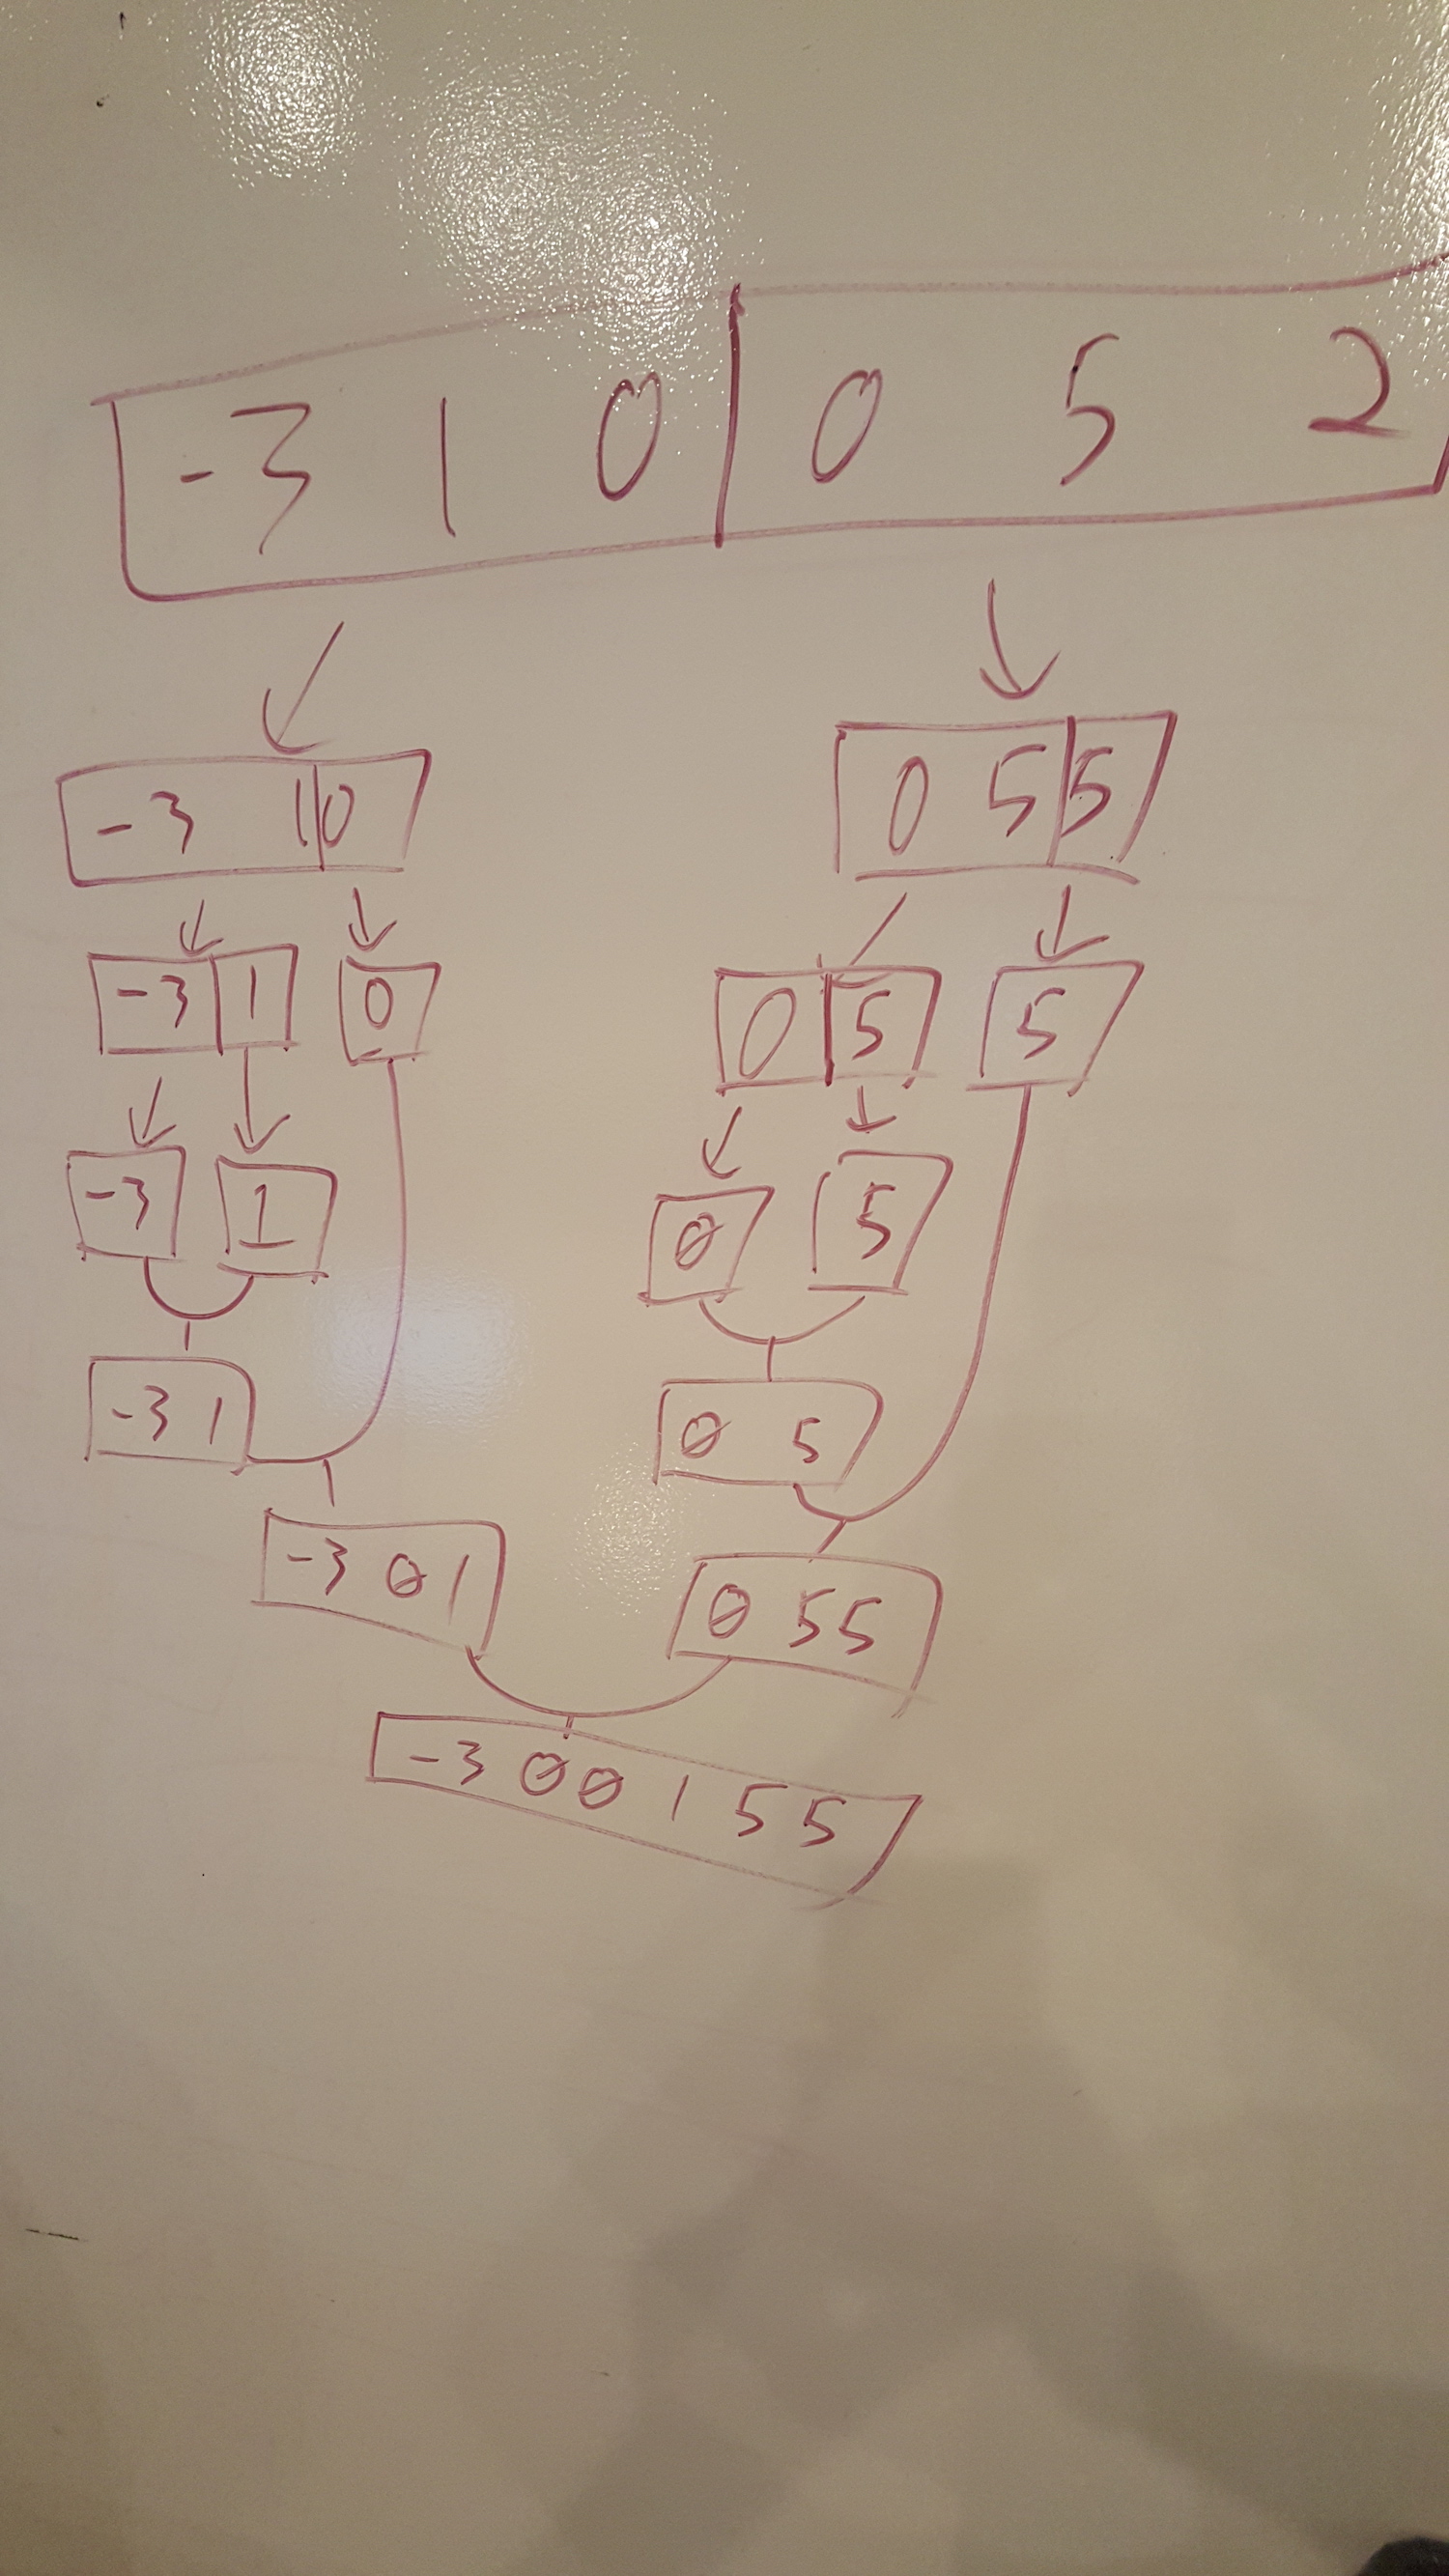 -3 1 0 0 5 2
-3 1 0 0 5 5
-3 1 0 0 5 5
-3 1 0 5
-3 1 0 5
-3 0 1 0 5 5
-3 0 0 1 5 5